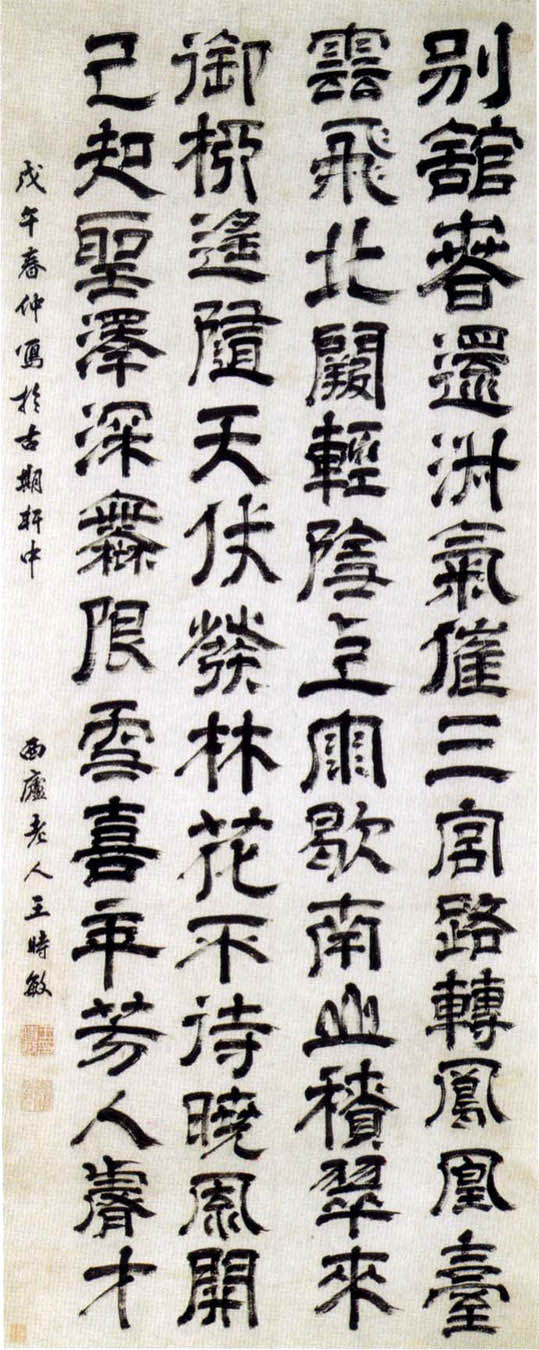 別館春還淑氣催三宮路轉鳳凰臺
雲飛北闕輕陰雨歇南山積翠來
御柳遙隨天仗發林花不待曉風開
已知聖澤深無限雪喜年芳入睿才
戊午春仲寫於古期軒中 西廬老人王時敏